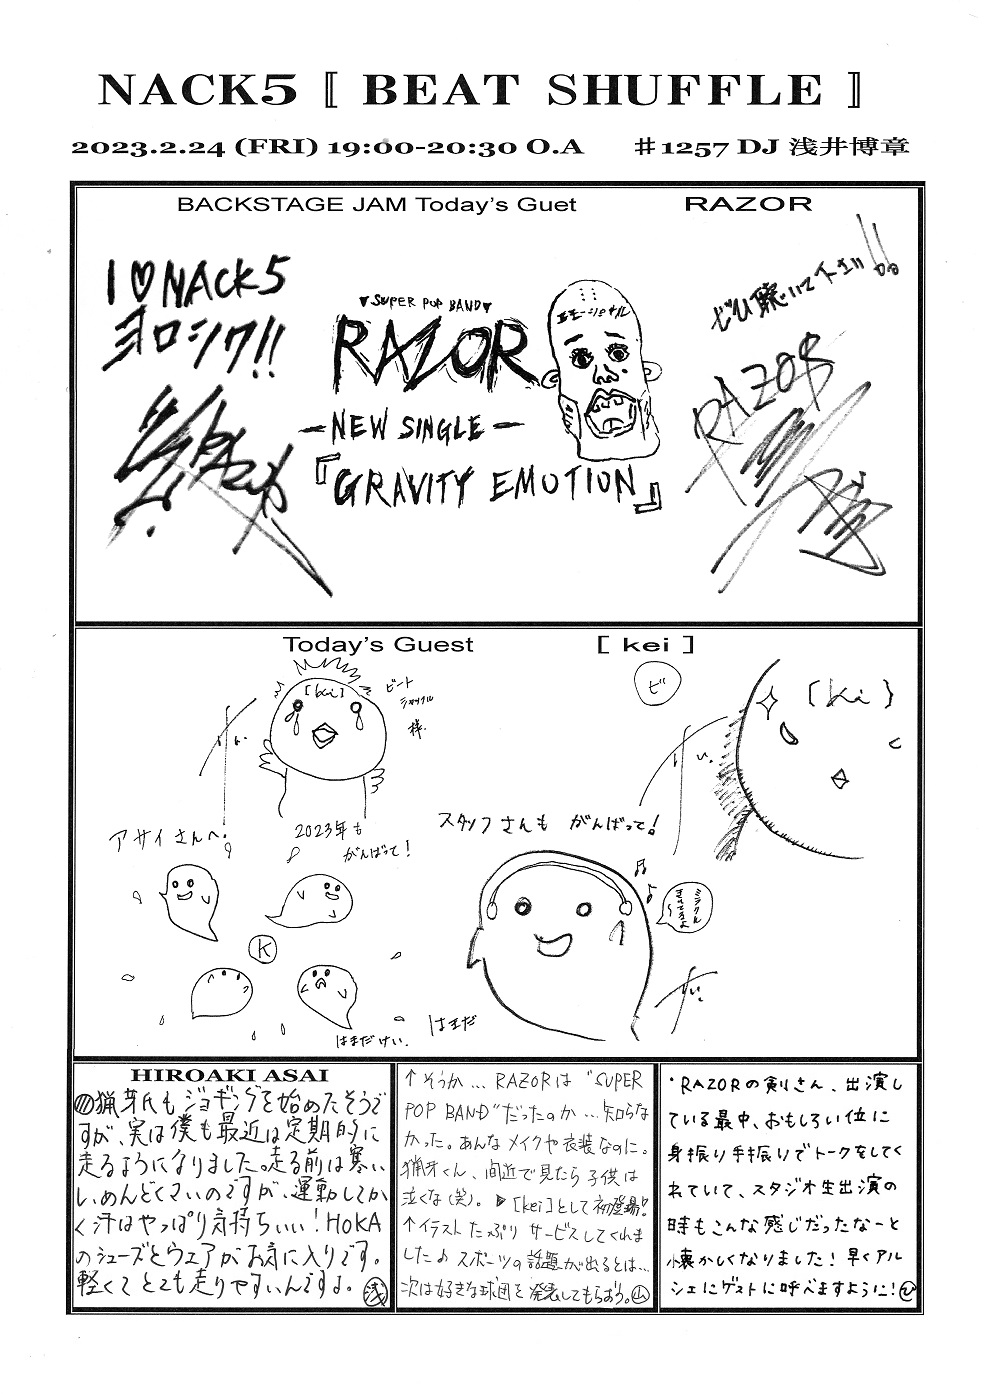 NACK5 〚 BEAT SHUFFLE 〛
2023.2.24 (FRI) 19:00-20:30 O.A  ♯1257 DJ 浅井博章
BACKSTAGE JAM Today's Guet  RAZOR
I ♡ NACK5
ヨロシク!!
▼SUPER POP BAND▼
RAZOR
-NEW SINGLE-
『GRAVITY EMOTION』
エモーショナル
ぜひ聴いて下さい!!
RAZOR
Today's Guest  [ kei ]
[kei]
ビート
シャッフル
様.
アサイさんへ.
2023年も
がんばって!
K
はまだけい.
ビ
[kei]
スタッフさんも がんばって!
ミラクル
きいてるよ
はまだ
けい.
HIROAKI ASAI
猟牙氏もジョギングを始めたそうで
すが、実は僕も最近は定期的に
走るようになりました。走る前は寒い
し、めんどくさいのですが、運動してか
く汗はやっぱり気持ちいい!HOKA
のシューズとウェアがお気に入りです。
軽くてとても走りやすいんですよ。浅
↑そうか…RAZORは "SUPER
POP BAND"だったのか…知らな
かった。あんなメイクや衣装なのに。
猟牙くん、間近で見たら子供は
泣くな(笑)。▶[kei]として初登場!
↑イラストたっぷりサービスしてくれま
した♪スポーツの話題が出るとは…
次は好きな球団を発表してもらおう。山
・RAZORの剣さん、出演し
ている最中、おもしろい位に
身振り手振りでトークをしてく
れていて、スタジオ生出演の
時もこんな感じだったなーと
懐かしくなりました!早くアル
シェにゲストに呼べますように!ひ